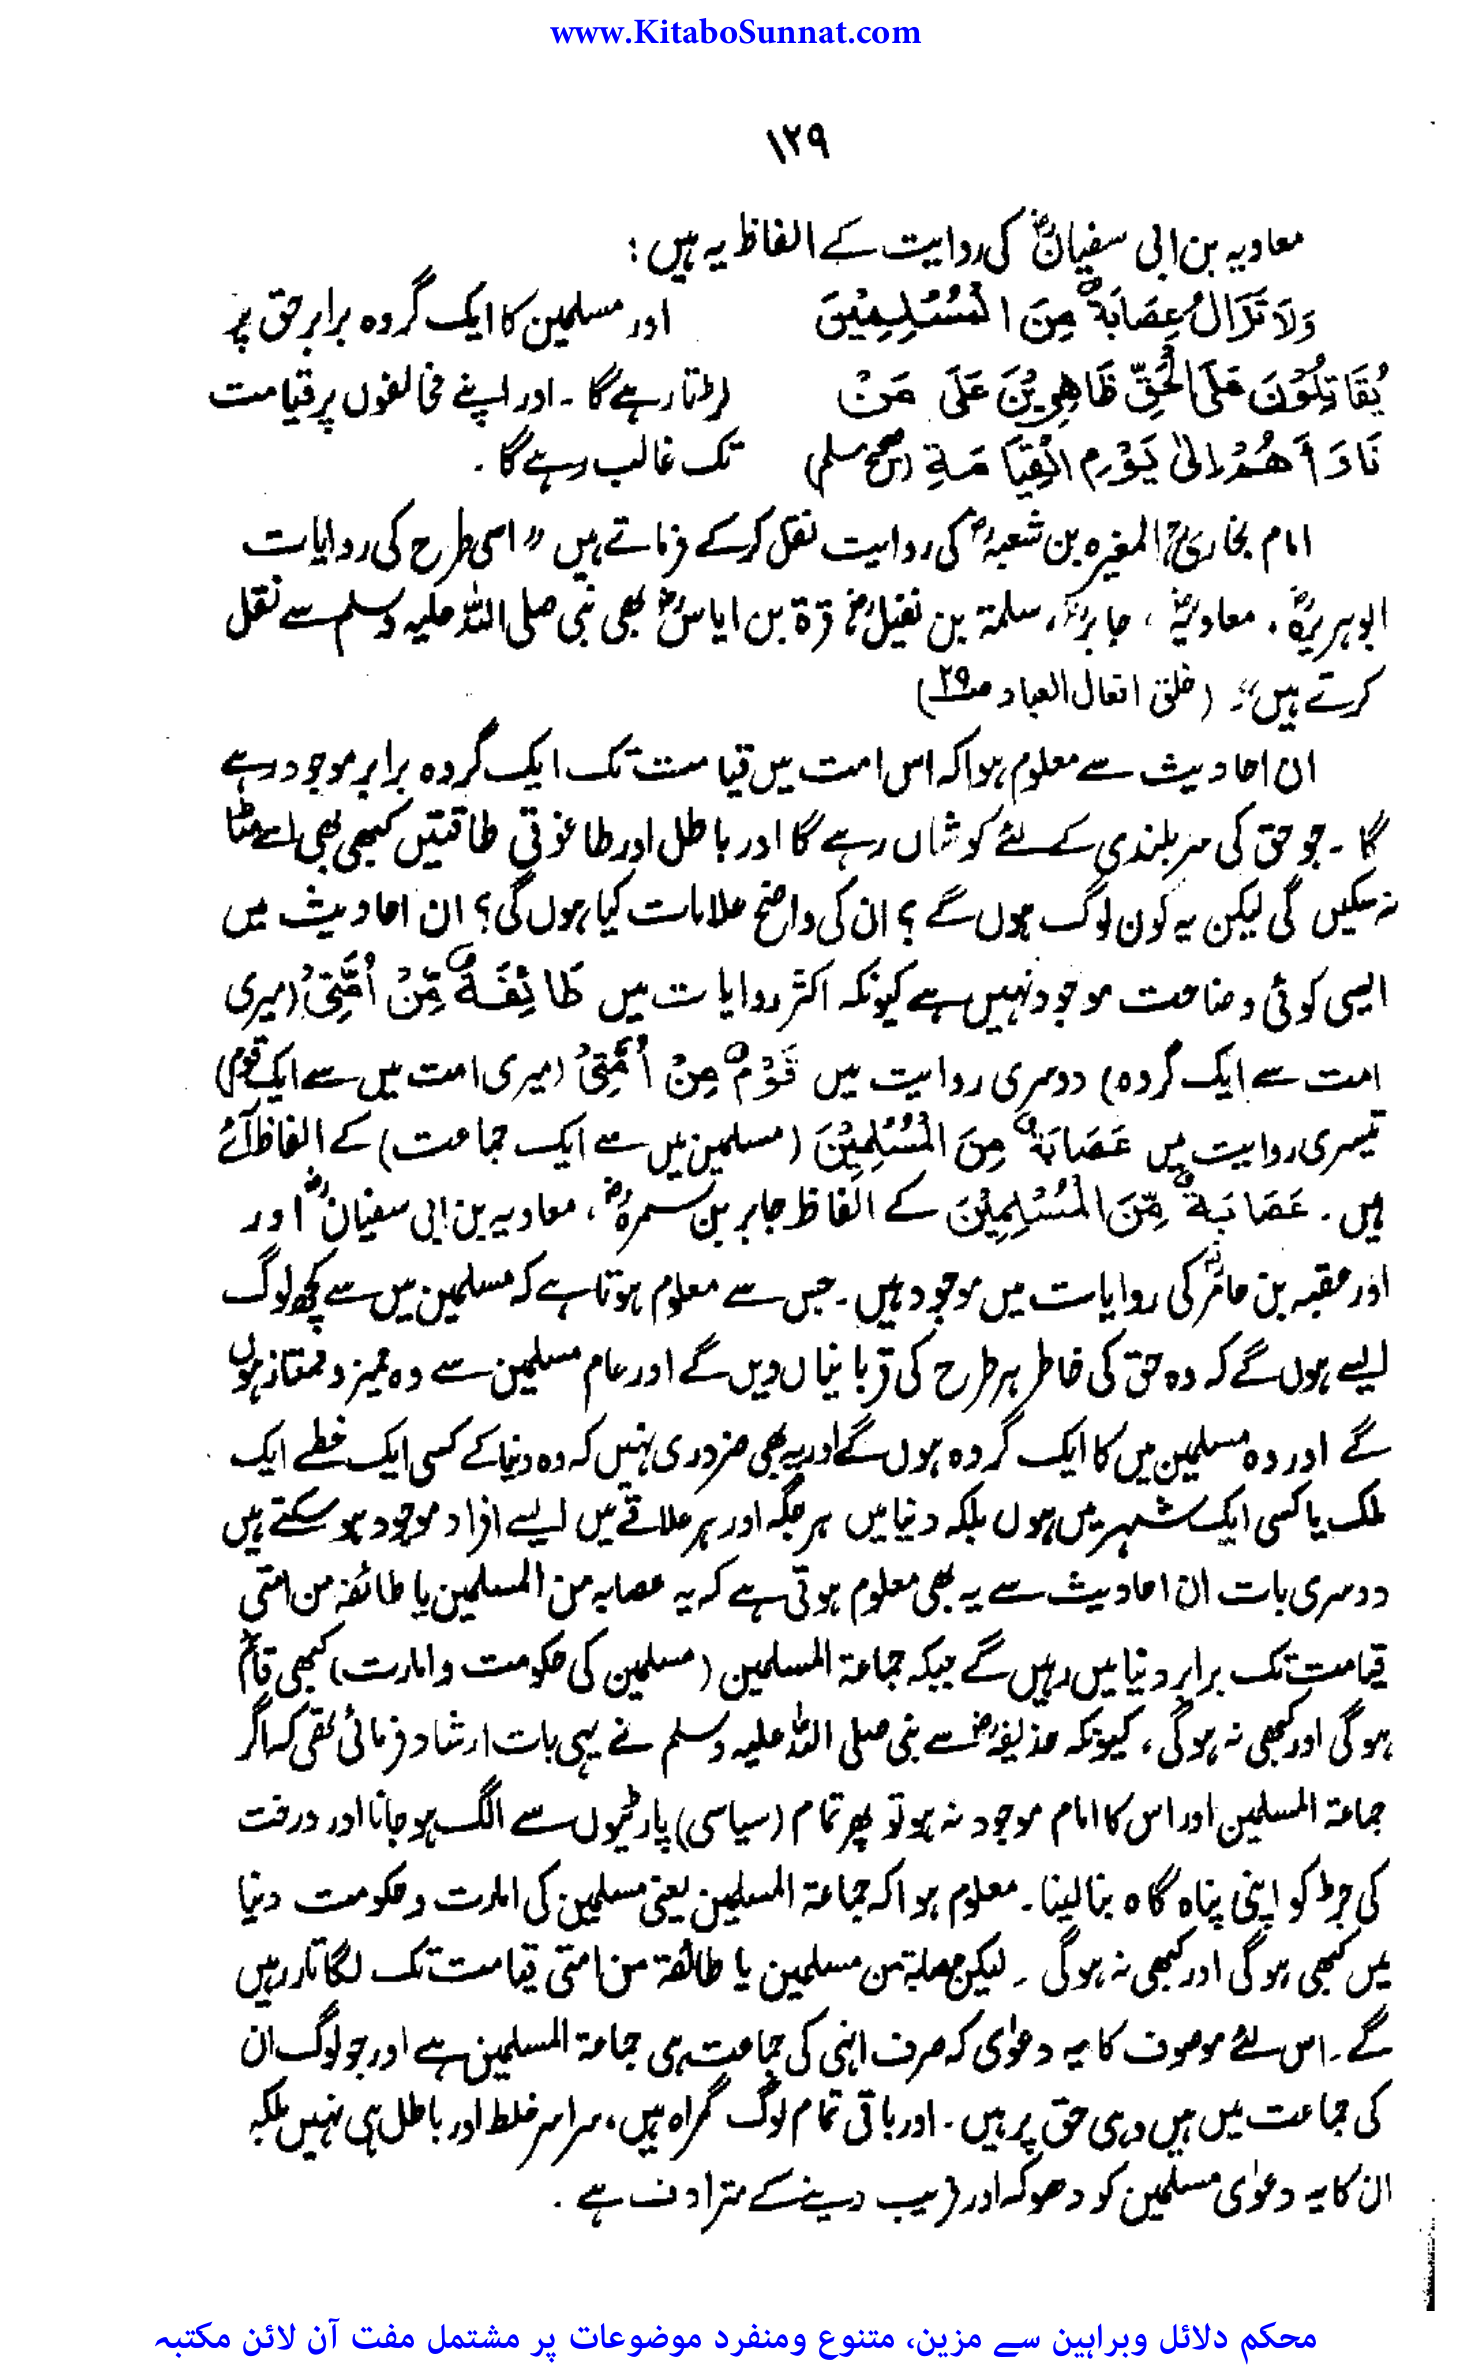 www.KitaboSunnat.com
۱۲۹
معاویہ بن ابی سفیانؓ کی روایت کے الفاظ یہ ہیں :
وَلَا تَزَالُ عِصَابَةٌ مِنَ الْمُسْلِمِيْنَ اور مسلمین کا ایک گروہ برابر حق پر
يُقَاتِلُوْنَ عَلَى الْحَقِّ ظَاهِرِيْنَ عَلَى مَنْ لڑتا رہے گا ۔ اور اپنے مخالفوں پر قیامت
نَاوَأَهُمْ اِلىٰ يَوْمِ الْقِيَامَةِ (صحیح مسلم) تک غالب رہے گا ۔
امام بخاریؒ المغیرہ بن شعبہؓ کی روایت نقل کرکے فرماتے ہیں “اسی طرح کی روایات
ابوہریرہؓ ، معاویہؓ ، جابرؓ ، سلمۃ بن نفیلؓ قرۃ بن ایاسؓ بھی نبی صلی اللہ علیہ وسلم سے نقل
کرتے ہیں”۔ (خلق افعال العباد صـ۲۹)
ان احادیث سے معلوم ہوا کہ اس امت میں قیامت تک ایک گروہ برابر موجود رہے
گا ۔ جو حق کی سربلندی کے لئے کوشاں رہے گا اور باطل اور طاغوتی طاقتیں کبھی بھی اسے مٹا
نہ سکیں گی لیکن یہ کون لوگ ہوں گے ؟ ان کی واضح علامات کیا ہوں گی؟ ان احادیث میں
ایسی کوئی وضاحت موجود نہیں ہے کیونکہ اکثر روایات میں طَائِفَةٌ مِّنْ اُمَّتِیْ (میری
امت سے ایک گروہ) دوسری روایت میں قَوْمٌ مِنْ اُمَّتِیْ (میری امت میں سے ایک قوم)
تیسری روایت میں عَصَابَةٌ مِنَ الْمُسْلِمِیْنَ (مسلمین میں سے ایک جماعت) کے الفاظ آئے
ہیں ۔ عَصَابَةٌ مِّنَ الْمُسْلِمِیْنَ کے الفاظ جابر بن سمرہؓ ، معاویہ بن ابی سفیانؓ اور
اور عقبہ بن عامرؓ کی روایات میں موجود ہیں ۔ جس سے معلوم ہوتا ہے کہ مسلمین میں سے کچھ لوگ
ایسے ہوں گے کہ وہ حق کی خاطر ہر طرح کی قربانیاں دیں گے اور عام مسلمین سے وہ ممیز و ممتاز ہوں
گے اور وہ مسلمین میں کا ایک گروہ ہوں گے اور یہ بھی ضروری نہیں کہ وہ دنیا کے کسی ایک خطے ایک
ملک یا کسی ایک شہر میں ہوں بلکہ دنیا میں ہر جگہ اور ہر علاقے میں ایسے افراد موجود ہو سکتے ہیں
دوسری بات ان احادیث سے یہ بھی معلوم ہوتی ہے کہ یہ عصابہ من المسلمین یا طائفۃ من امتی
قیامت تک برابر دنیا میں رہیں گے جبکہ جماعۃ المسلمین (مسلمین کی حکومت و امارت) کبھی قائم
ہوگی اور کبھی نہ ہوگی ، کیونکہ حذیفہؓ سے نبی صلی اللہ علیہ وسلم نے یہی بات ارشاد فرمائی تھی کہ اگر
جماعۃ المسلمین اور اس کا امام موجود نہ ہو تو پھر تمام (سیاسی) پارٹیوں سے الگ ہو جانا اور درخت
کی جڑ کو اپنی پناہ گاہ بنا لینا ۔ معلوم ہوا کہ جماعۃ المسلمین یعنی مسلمین کی امارت و حکومت دنیا
میں کبھی ہوگی اور کبھی نہ ہوگی ۔ لیکن عصابۃ من مسلمین یا طائفۃ من امتی قیامت تک لگاتار رہیں
گے ۔ اس لئے موصوف کا یہ دعوٰی کہ صرف انہی کی جماعت ہی جماعۃ المسلمین ہے اور جو لوگ ان
کی جماعت میں ہیں وہی حق پر ہیں ۔ اور باقی تمام لوگ گمراہ ہیں ، سراسر غلط اور باطل ہی نہیں بلکہ
ان کا یہ دعوٰی مسلمین کو دھوکہ اور فریب دینے کے مترادف ہے ۔
محکم دلائل وبراہین سے مزین، متنوع ومنفرد موضوعات پر مشتمل مفت آن لائن مکتبہ